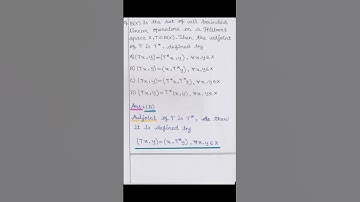 B(X) is the set of all bounded
linear operators on a Hilbert
space X, T∈B(X). Then the adjoint
of T is T*, defined by
A) (Tx,y)=(T*x,y), ∀x,y∈X
B) (Tx,y)=(x,T*y), ∀x,y∈X
C) (Tx,y)=(T*x,T*y), ∀x,y∈X
D) (Tx,y)=T*(x,y), ∀x,y∈X
Ans:-(B)
Adjoint of T is T*, then
it is defined by
(Tx,y)=(x,T*y), ∀x,y∈X